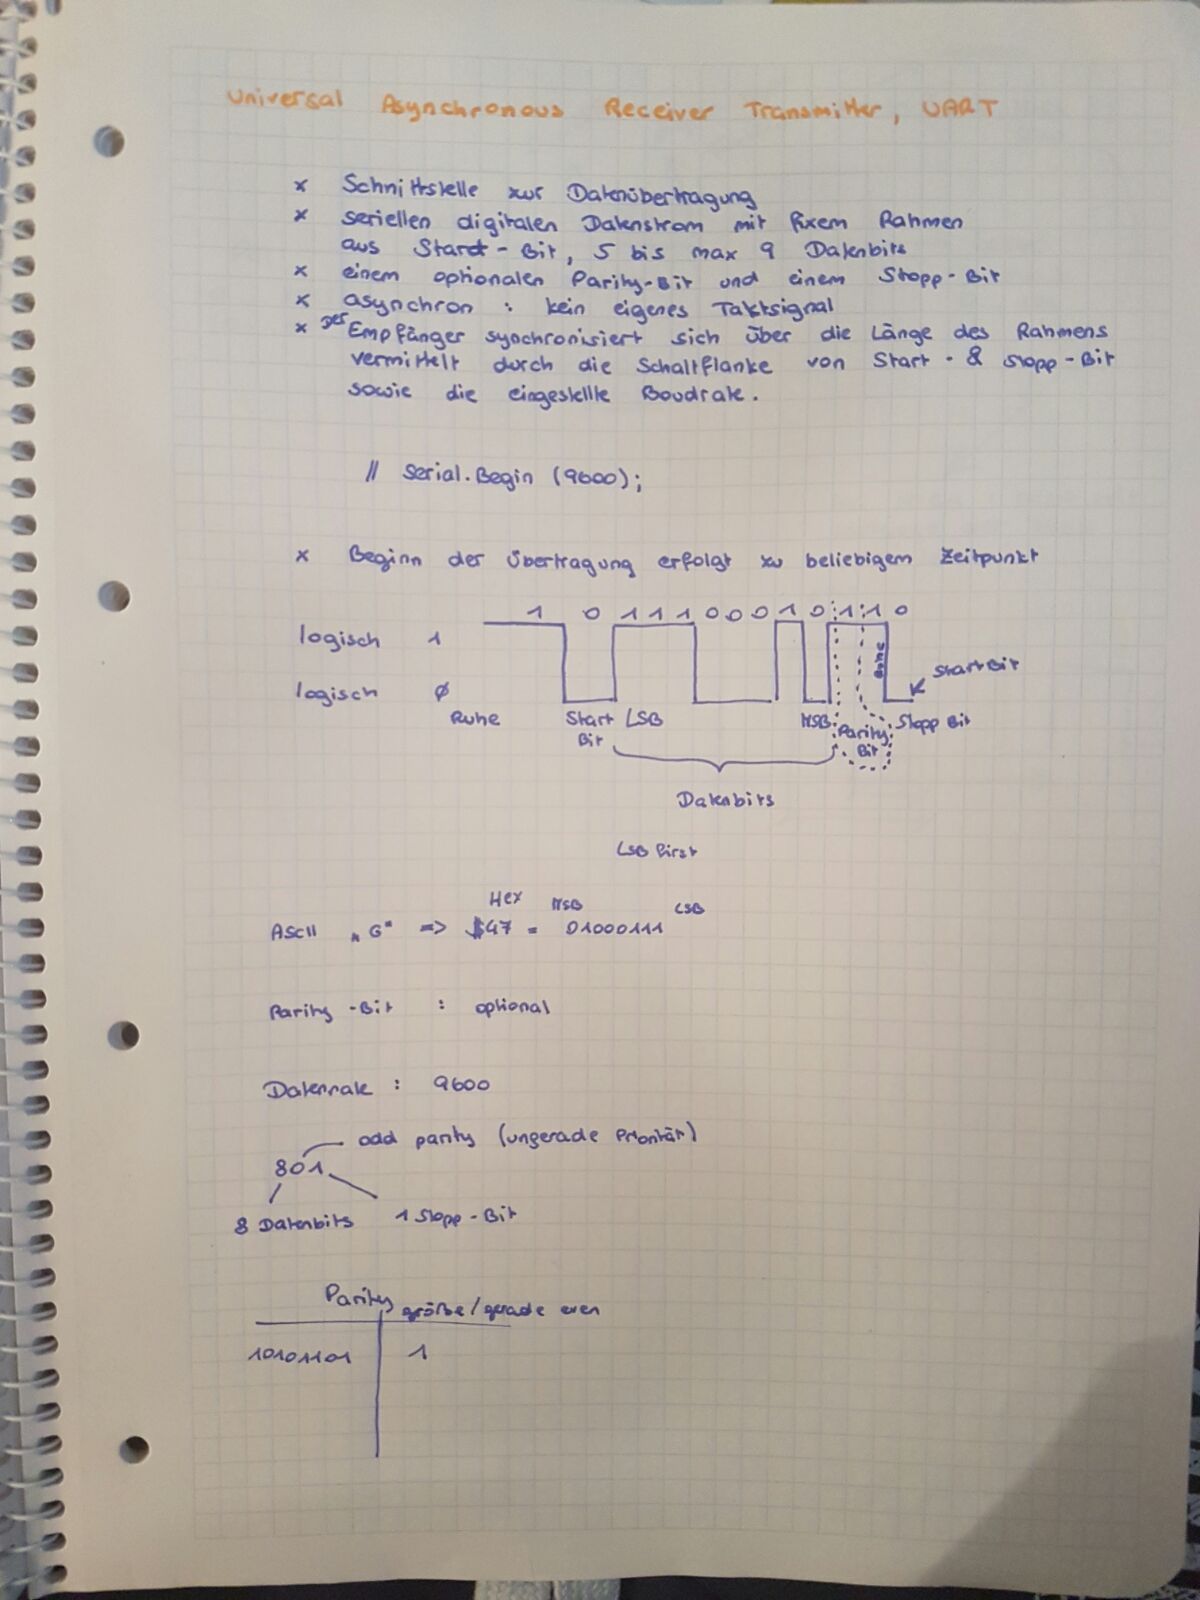 Universal Asynchronous Receiver Transmitter, UART
x Schnittstelle zur Datenübertragung
x seriellen digitalen Datenstrom mit fixem Rahmen
aus Start-Bit, 5 bis max 9 Datenbits
x einem optionalen Parity-Bit und einem Stopp-Bit
x asynchron : kein eigenes Taktsignal
x Der Empfänger synchronisiert sich über die Länge des Rahmens
vermittelt durch die Schaltflanke von Start - & Stopp-Bit
sowie die eingestellte Boudrate.
// Serial.Begin (9600);
x Beginn der Übertragung erfolgt zu beliebigem Zeitpunkt
1 0 1 1 1 0 0 0 1 0 1 1 0
logisch 1
Ruhe
Start Bit
logisch Ø
Ruhe Start LSB MSB Parity Stopp Bit
Bit Bit
Datenbits
LSB first
Hex MSB LSB
ASCII "G" => $47 = 01000111
Parity-Bit : optional
Datenrate : 9600
odd parity (ungerade Priorität)
8o1
8 Datenbits 1 Stopp-Bit
Parity größe/gerade even
10101101 1